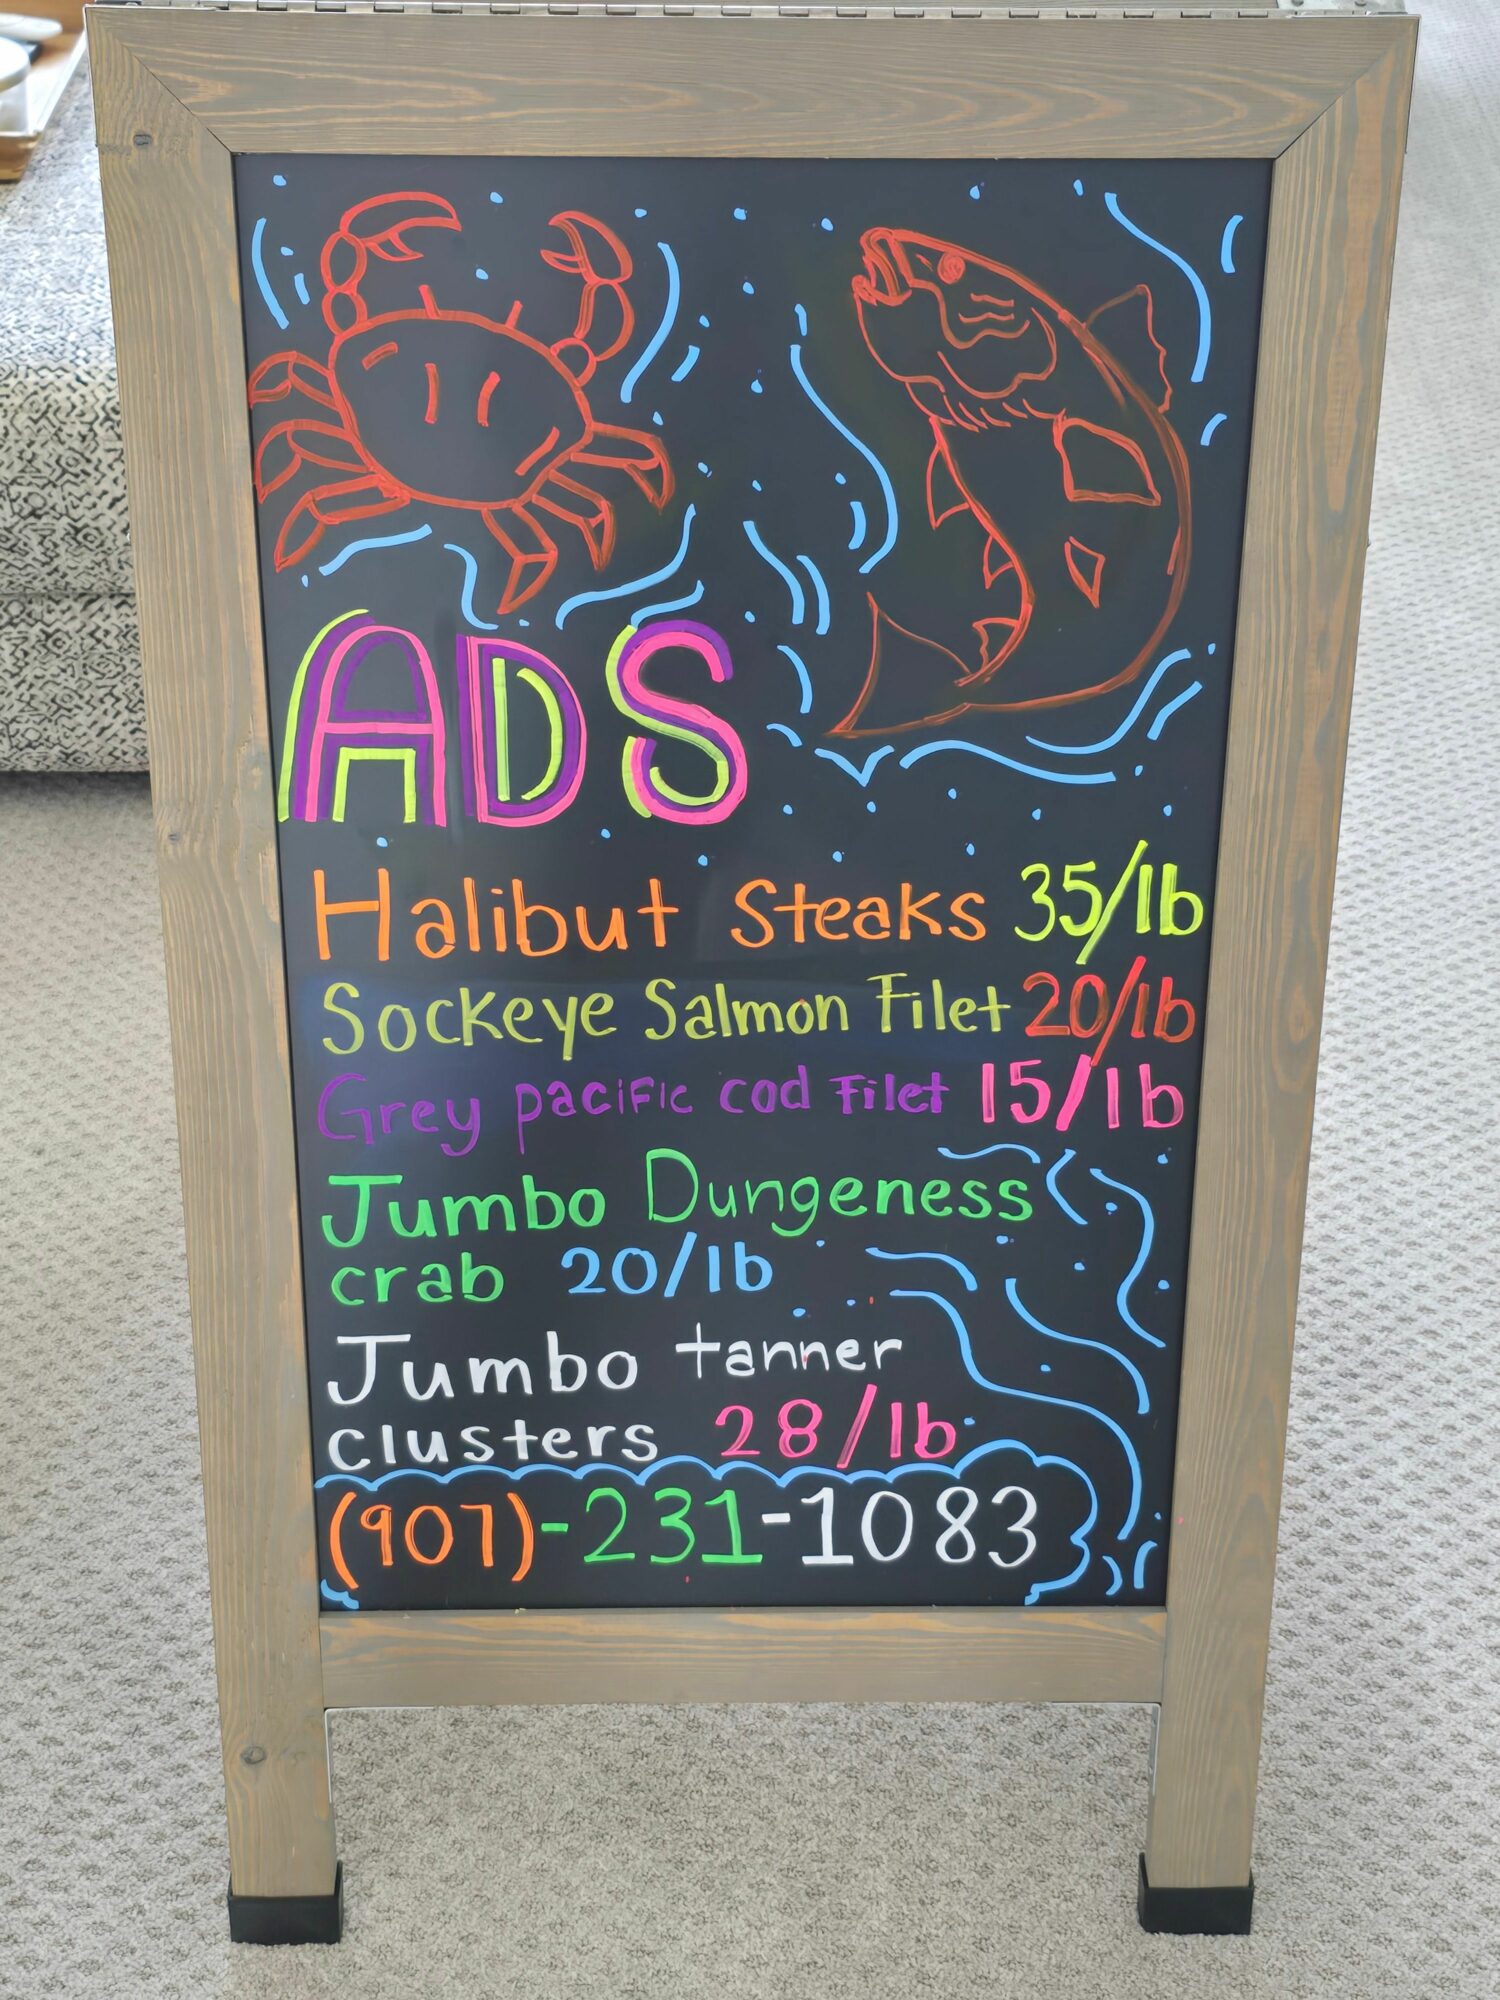 ADS
Halibut Steaks 35/lb
Sockeye Salmon Filet 20/lb
Grey pacific cod Filet 15/lb
Jumbo Dungeness
crab 20/lb
Jumbo tanner
clusters 28/lb
(907)-231-1083